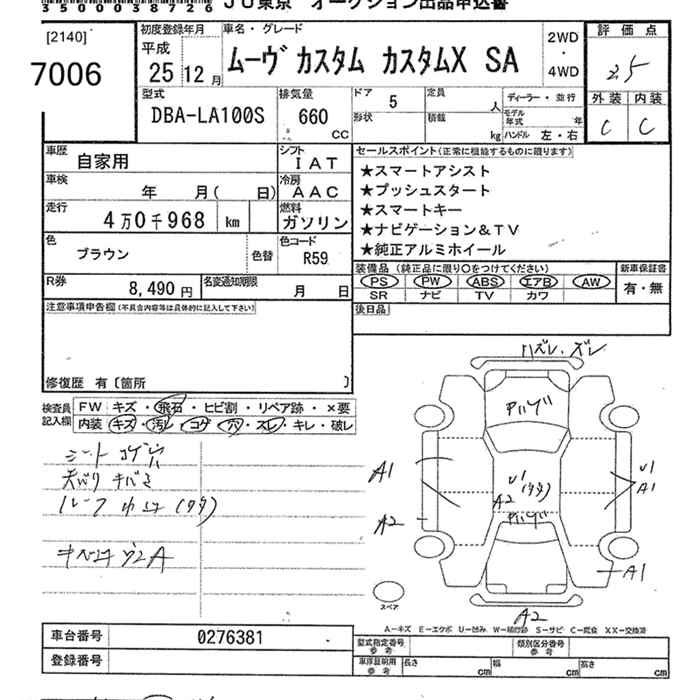 35000038726 JU東京 オークション出品申込書
[2140]
7006
初度登録年月 平成 25年 12月
車名・グレード ムーヴ カスタム カスタムX SA
2WD・4WD
評価点
2.5
外装 内装
C C
型式 DBA-LA100S
排気量 660 CC
ドア 5
形状
定員 人
積載 kg
ディーラー・並行
モデル年式 年
ハンドル 左・右
車歴 自家用
シフト IAT
車検 年 月( 日)
冷房 AAC
走行 4万0千968 km
燃料 ガソリン
色 ブラウン 色替
色コード R59
R券 8,490円
名変通知期限 月 日
セールスポイント(正常に機能するものに限ります)
★スマートアシスト
★プッシュスタート
★スマートキー
★ナビゲーション&TV
★純正アルミホイール
装備品(純正品に限り○をつけてください)
PS PW ABS エアB AW
SR ナビ TV カワ
新車保証書
有・無
後日品
注意事項申告欄(不具合内容等は具体的に記入して下さい)
修復歴 有〔箇所 〕
検査員記入欄
FW キズ・飛石・ヒビ割・リペア跡・×要
内装 キズ・汚レ・コゲ・穴・スレ・キレ・破レ
シート コゲ穴
ルーフ
ハズレ、ズレ
A1
A2
U1
A2
U1
A1
A1
A2
スペア
A-キズ E-エクボ U-凹み W-補修跡 S-サビ C-腐食 XX-交換済
車台番号 0276381
登録番号
型式指定番号 参考
類別区分番号 参考
車庫証明用 参考 長さ cm 幅 cm 高さ cm